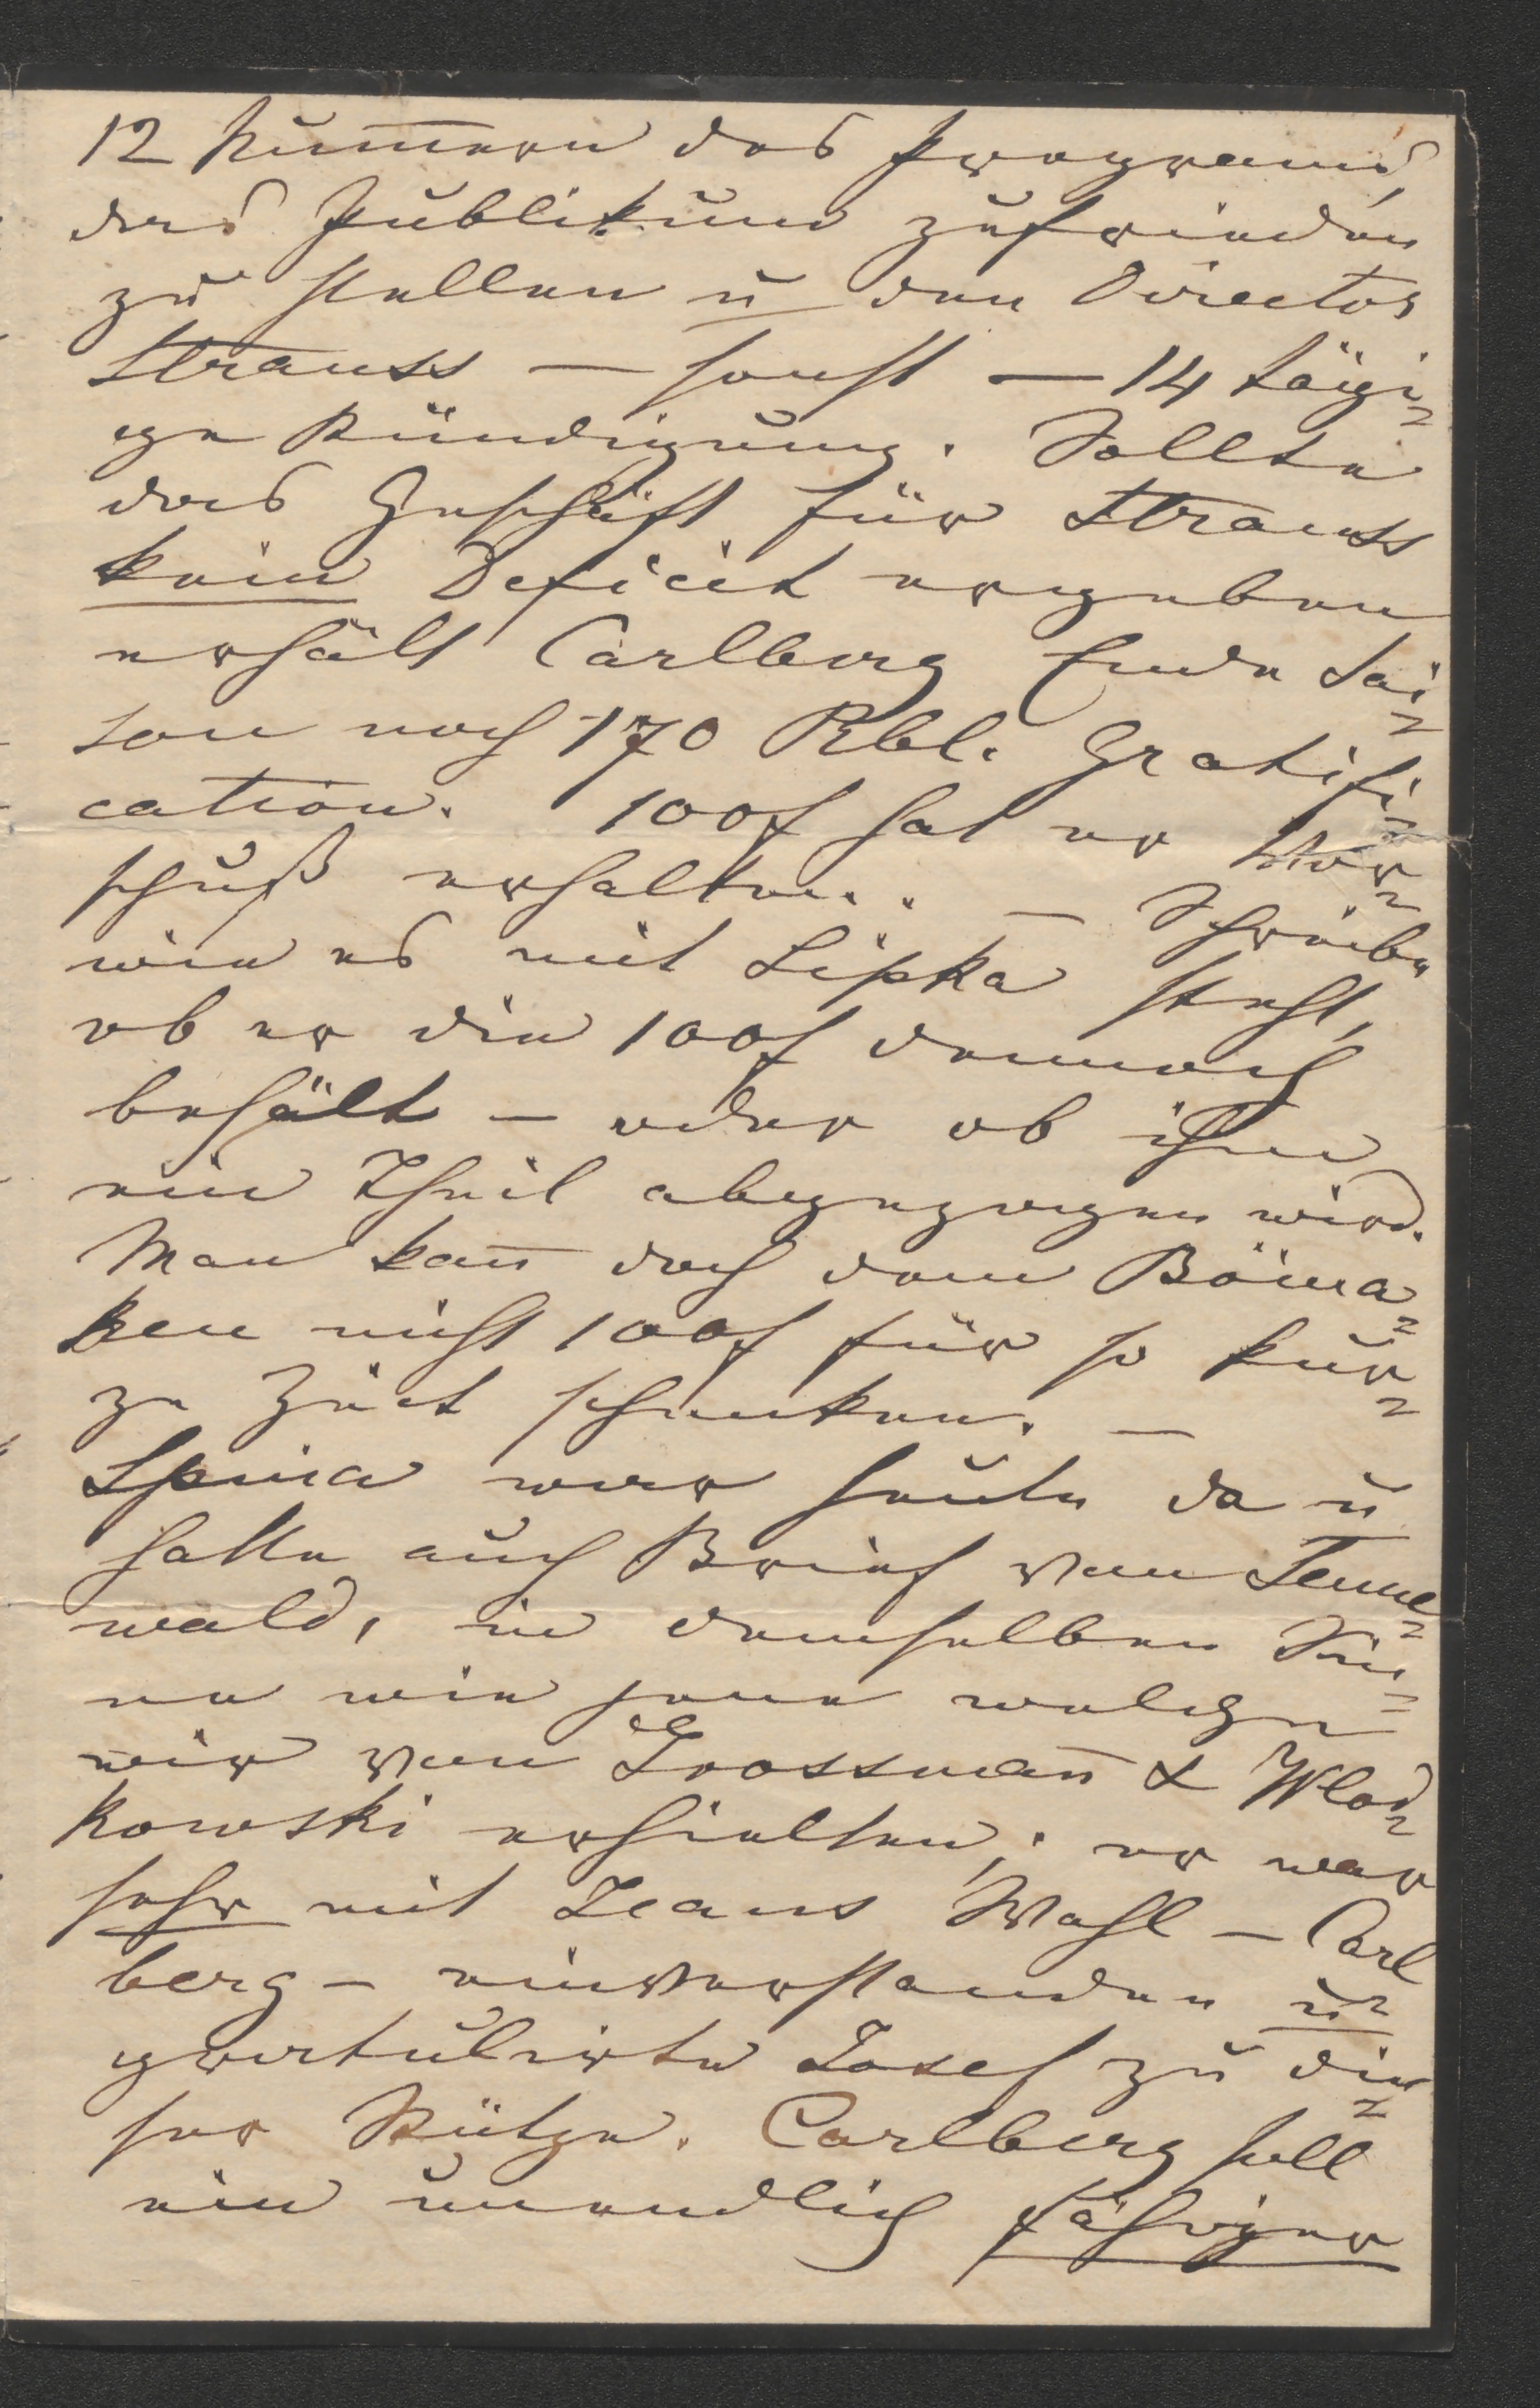 12 Num̅ern des Programms,
das Publikum zufrieden
zu stellen u den Director
Strauss — sonst — 14 tägi=
ge Kündigung. Sollte
das Geschäft für Strauss
kein Deficit ergeben
erhält Carlberg Ende Sai=
son noch 170 Rbl. Gratifi=
cation. 100f hat er Vor=
schuß erhalten. — Schreibe
wie es mit Lipka steht,
ob er die 100f dennoch
behält — oder ob ihm
ein Theil abgezogen wird.
Man kan̅ doch dem Böma=
ken nicht 100f für so kur=
ze Zeit schenken. —
Spina war heute da u
hatte auch Brief von Leune=
wald, in demselben Sin=
ne wie jene welche
wir von Grossman̅ & Wlad=
kowski erhielten; er war
sehr mit Jeans Wahl — Carl
berg — einverstanden u
gratulirte Josef zu die=
ser Stütze. Carlberg soll
ein unendlich fähiger